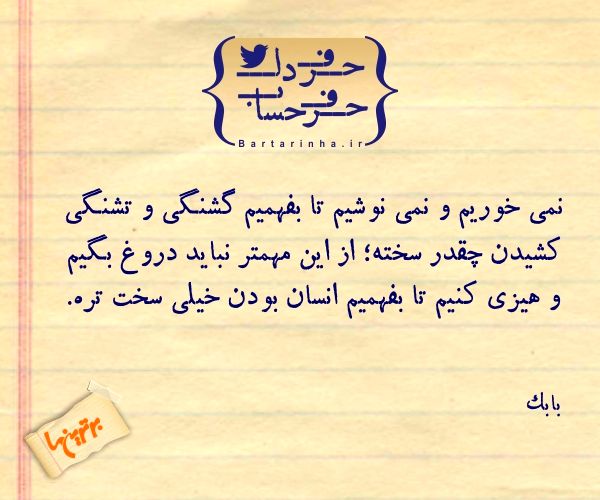 حرف دل
حرف حساب
Bartarinha.ir
نمی خوریم و نمی نوشیم تا بفهمیم گشنگی و تشنگی
کشیدن چقدر سخته؛ از این مهمتر نباید دروغ بگیم
و هیزی کنیم تا بفهمیم انسان بودن خیلی سخت تره.
بابك
برترینها